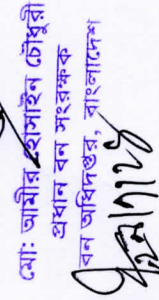 মোঃ আমীর হোসাইন চৌধুরী
প্রধান বন সংরক্ষক
বন অধিদপ্তর, বাংলাদেশ